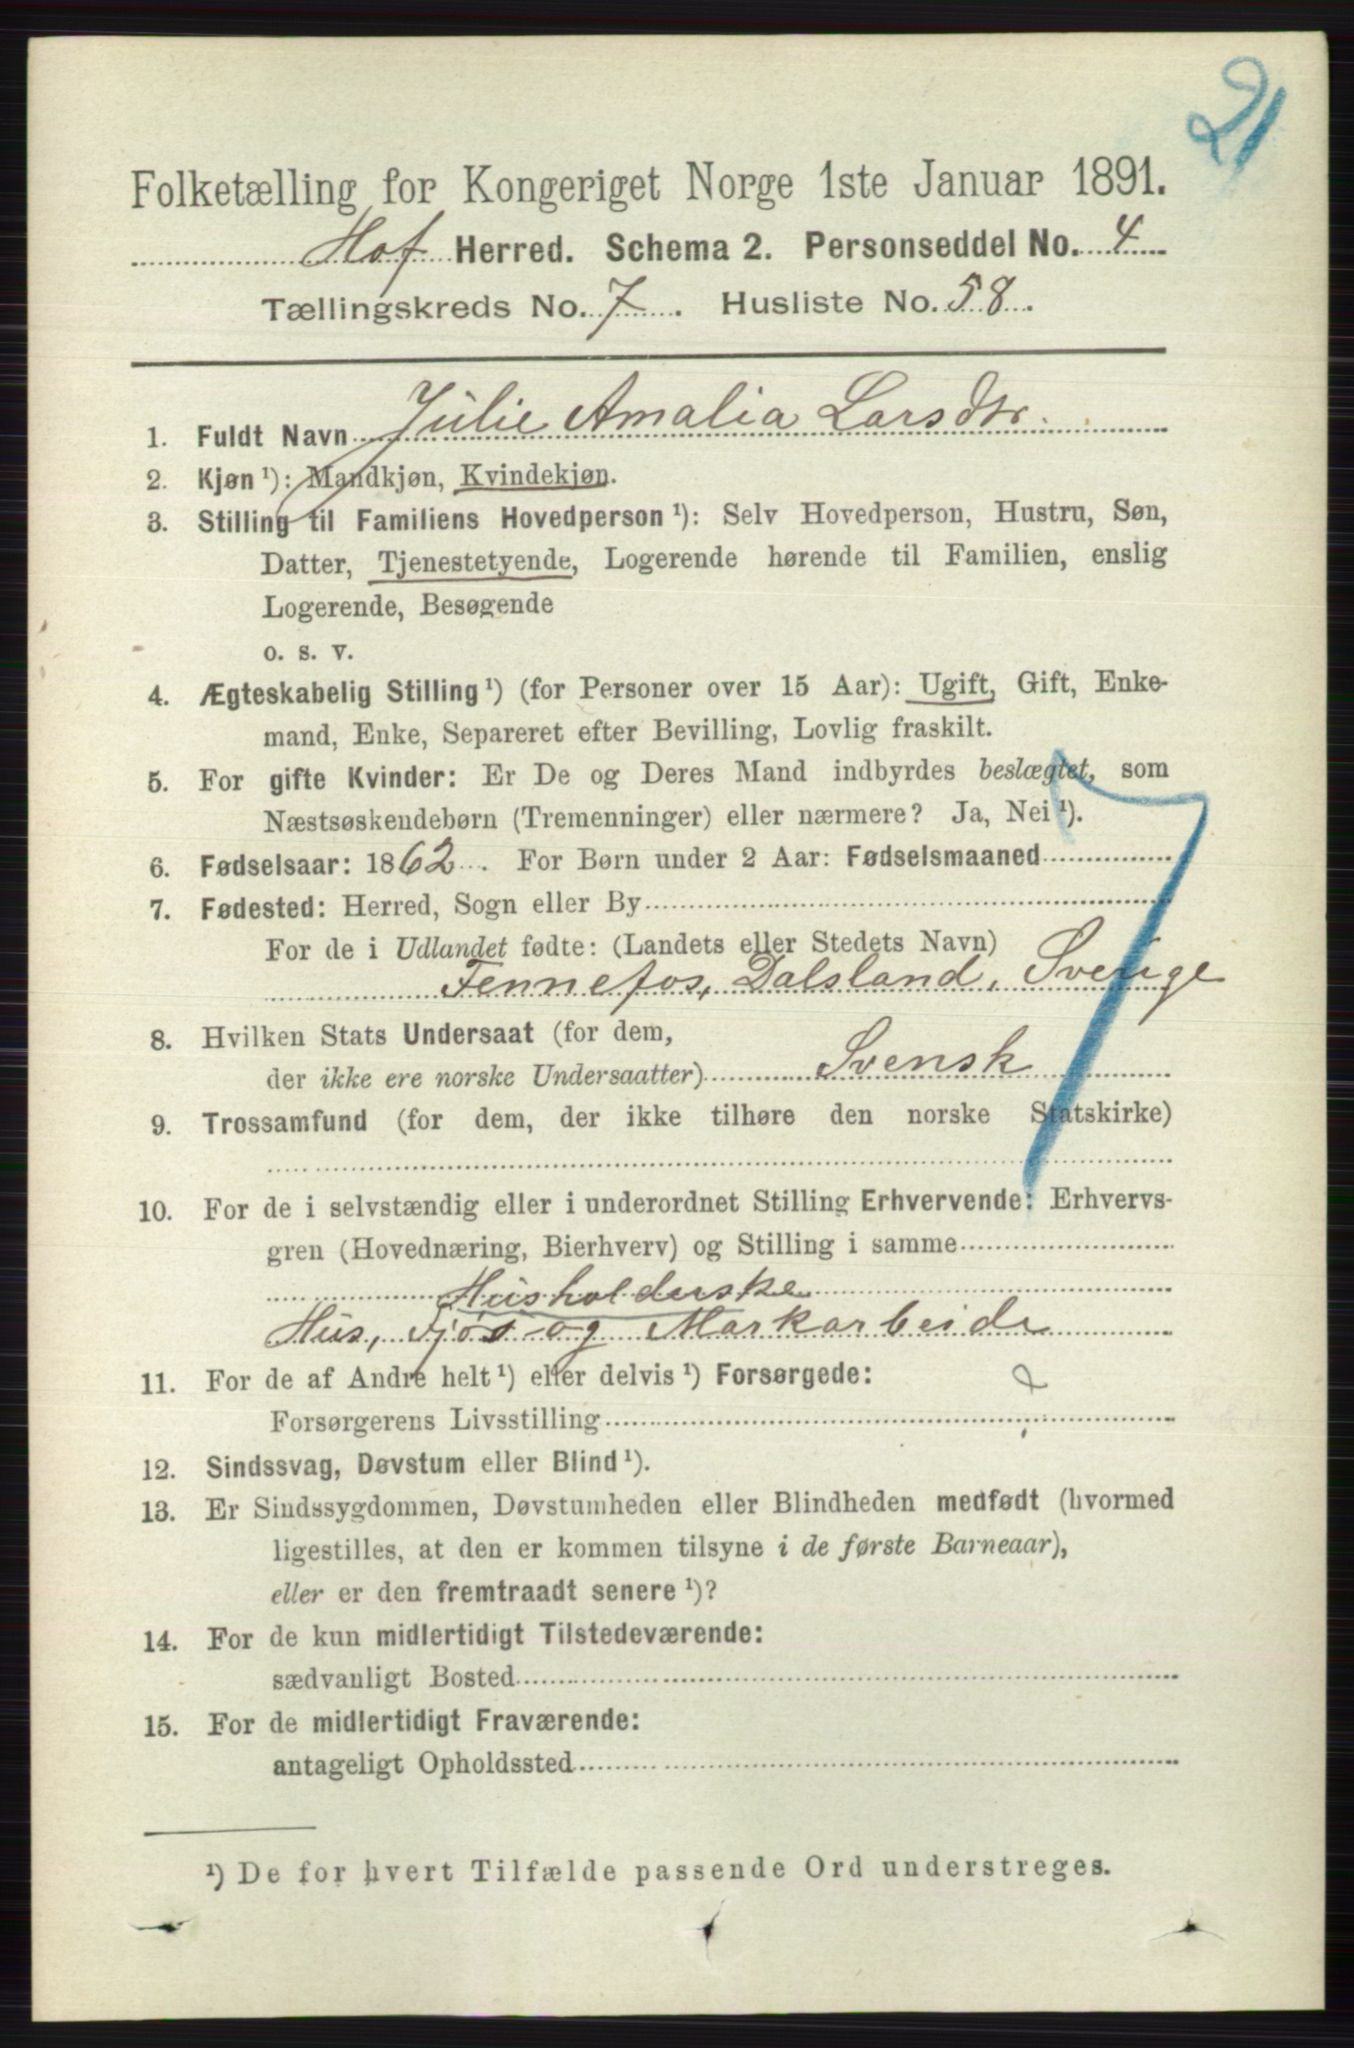 21
Folketælling for Kongeriget Norge 1ste Januar 1891.
Hof Herred. Schema 2. Personseddel No. 4
Tællingskreds No. 7. Husliste No. 58.
1. Fuldt Navn Julie Amalia Larsdtr.
2. Kjøn ¹): Mandkjøn, Kvindekjøn.
3. Stilling til Familiens Hovedperson ¹): Selv Hovedperson, Hustru, Søn,
Datter, Tjenestetyende, Logerende hørende til Familien, enslig
Logerende, Besøgende
o. s. v.
4. Ægteskabelig Stilling ¹) (for Personer over 15 Aar): Ugift, Gift, Enke-
mand, Enke, Separeret efter Bevilling, Lovlig fraskilt.
5. For gifte Kvinder: Er De og Deres Mand indbyrdes beslægtet, som
Næstsøskendebørn (Tremenninger) eller nærmere? Ja, Nei ¹).
7
6. Fødselsaar: 1862. For Børn under 2 Aar: Fødselsmaaned
7. Fødested: Herred, Sogn eller By
For de i Udlandet fødte: (Landets eller Stedets Navn)
Fennefos, Dalsland, Sverige
8. Hvilken Stats Undersaat (for dem,
der ikke ere norske Undersaatter) Svensk
9. Trossamfund (for dem, der ikke tilhøre den norske Statskirke)
10. For de i selvstændig eller i underordnet Stilling Erhvervende: Erhvervs-
gren (Hovednæring, Bierhverv) og Stilling i samme
Husholderske
Hus, Fjøs og Markarbeide
11. For de af Andre helt ¹) eller delvis ¹) Forsørgede:
Forsørgerens Livsstilling
12. Sindssvag, Døvstum eller Blind ¹).
13. Er Sindssygdommen, Døvstumheden eller Blindheden medfødt (hvormed
ligestilles, at den er kommen tilsyne i de første Barneaar),
eller er den fremtraadt senere ¹)?
14. For de kun midlertidigt Tilstedeværende:
sædvanligt Bosted
15. For de midlertidigt Fraværende:
antageligt Opholdssted
¹) De for hvert Tilfælde passende Ord understreges.